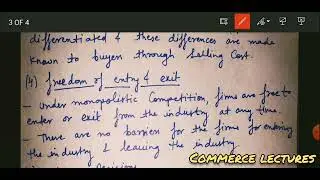 3 OF 4
differentiated & these differences are made
known to buyers through Selling Cost.
(4) freedom of entry & exit
- Under monopolistic Competition, firms are free to
enter or exit from the industry at any time.
- There are no barrier for the firms for entering
the industry & leaving the industry
COMMERCE LECTURES